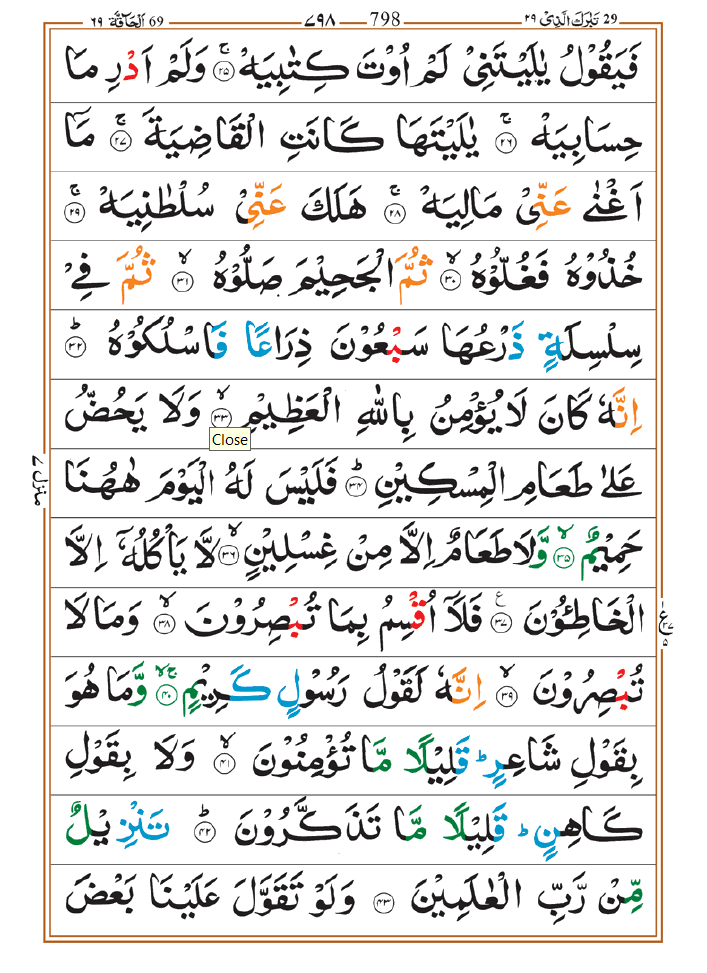 ٦٩ اَلْحَآقَّة 69 ٧٩٨ 798 تَبٰرَكَ الَّذِىْ ٢٩ 29
فَيَقُوْلُ يٰلَيْتَنِىْ لَمْ اُوْتَ كِتٰبِيَهْ ۚ‏﴿۲۵﴾ وَلَمْ اَدْرِ مَا
حِسَابِيَهْ ۚ‏﴿۲۶﴾ يٰلَيْتَهَا كَانَتِ الْقَاضِيَةَ ۚ‏﴿۲۷﴾ مَاۤ
اَغْنٰى عَنِّىْ مَالِيَهْ ۚ‏﴿۲۸﴾ هَلَكَ عَنِّىْ سُلْطٰنِيَهْ ۚ‏﴿۲۹﴾
خُذُوْهُ فَغُلُّوْهُ ۙ‏﴿۳۰﴾ ثُمَّ الْجَحِيْمَ صَلُّوْهُ ۙ‏﴿۳۱﴾ ثُمَّ فِىْ
سِلْسِلَةٍ ذَرْعُهَا سَبْعُوْنَ ذِرَاعًا فَاسْلُكُوْهُ ؕ‏﴿۳۲﴾
اِنَّهٗ كَانَ لَا يُؤْمِنُ بِاللّٰهِ الْعَظِيْمِ ۙ‏﴿۳۳﴾ وَلَا يَحُضُّ
Close
عَلٰى طَعَامِ الْمِسْكِيْنِ ؕ‏﴿۳۴﴾ فَلَيْسَ لَهُ الْيَوْمَ هٰهُنَا
منزل ٧
حَمِيْمٌ ۙ‏﴿۳۵﴾ وَّلَا طَعَامٌ اِلَّا مِنْ غِسْلِيْنٍ ۙ‏﴿۳۶﴾ لَّا يَاْكُلُهٗۤ اِلَّا
الْخَاطِـُٔوْنَ ‏﴿۳۷﴾ ع فَلَاۤ اُقْسِمُ بِمَا تُبْصِرُوْنَ ۙ‏﴿۳۸﴾ وَمَا لَا
ع ٣٧ ٥
تُبْصِرُوْنَ ۙ‏﴿۳۹﴾ اِنَّهٗ لَقَوْلُ رَسُوْلٍ كَرِيْمٍ ۚۙ‏﴿۴۰﴾ وَّمَا هُوَ
بِقَوْلِ شَاعِرٍ ؕ قَلِيْلًا مَّا تُؤْمِنُوْنَ ۙ‏﴿۴۱﴾ وَلَا بِقَوْلِ
كَاهِنٍ ؕ قَلِيْلًا مَّا تَذَكَّرُوْنَ ؕ‏﴿۴۲﴾ تَنْزِيْلٌ
مِّنْ رَّبِّ الْعٰلَمِيْنَ ‏﴿۴۳﴾ وَلَوْ تَقَوَّلَ عَلَيْنَا بَعْضَ